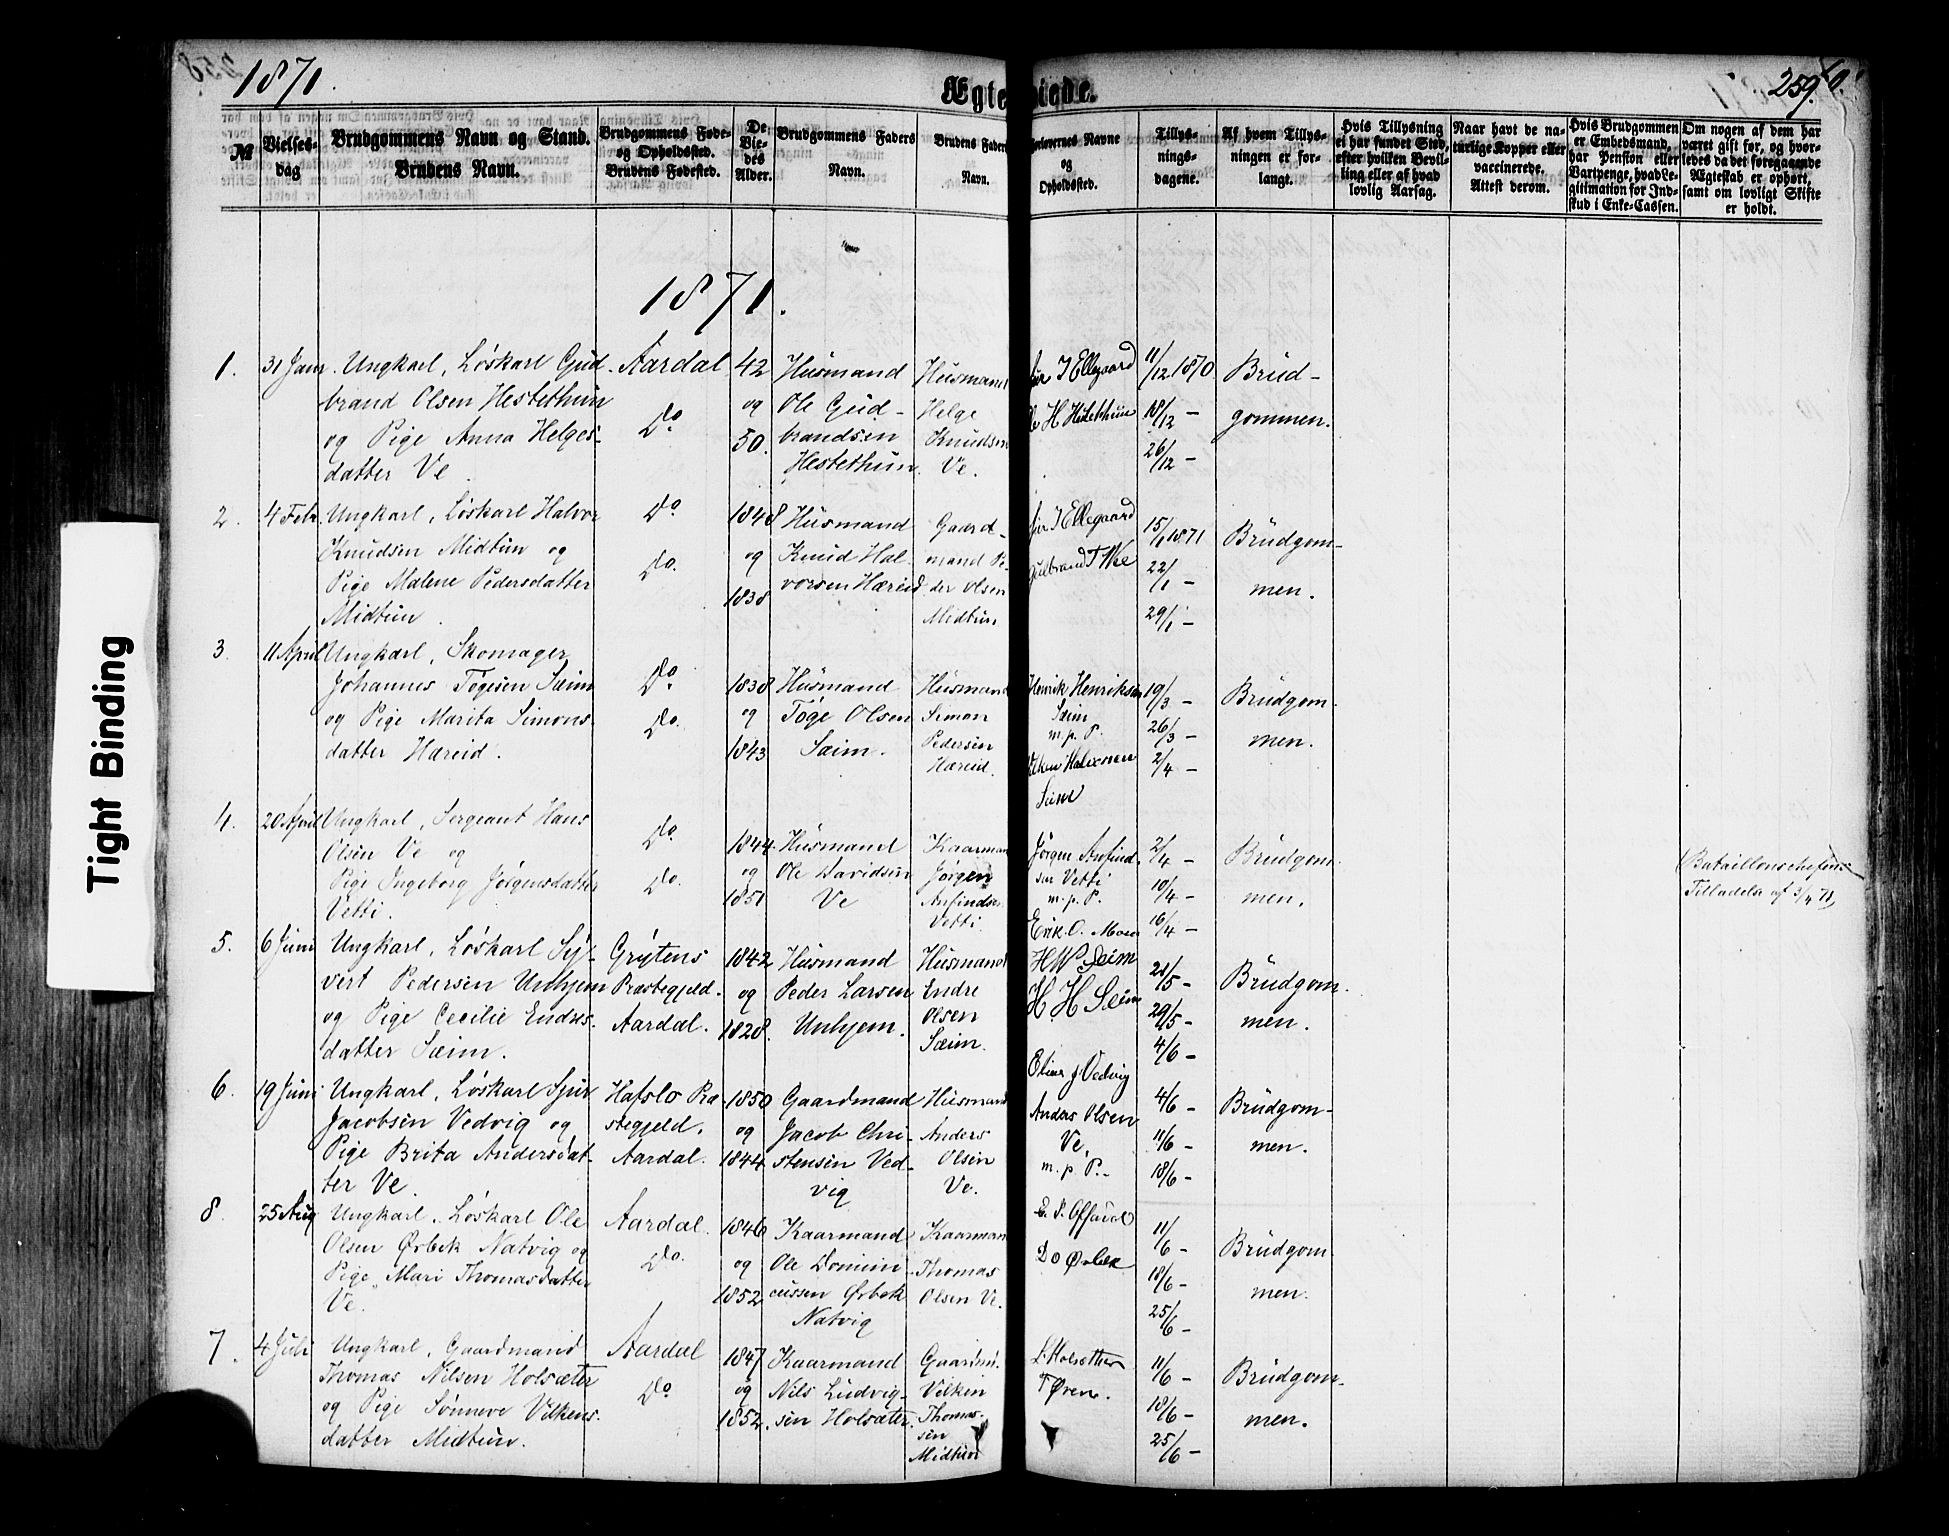 1871.
Ægteviede.
259.
№
Vielses-
dag
Brudgommens Navn og Stand.
Brudens Navn.
Brudgommens Føde-
og Opholdssted.
Brudens Fødested.
De
Vie-
des
Alder.
Brudgommens Faders
Navn.
Brudens Faders
Navn.
Forlovernes Navne
og
Opholdssted.
Tillys-
nings-
dagene.
Af hvem Tillys-
ningen er for-
langt.
Hvis Tillysning
ei har fundet Sted,
efter hvilken Bevil-
ling eller af hvad
lovlig Aarsag.
Naar havt de na-
turlige Kopper eller
vaccinerede.
Attest derom.
Hvis Brudgommen
er Embedsmand,
har Pension eller
Vartpenge, hvad Le-
gitimation for Ind-
skud i Enke-Cassen.
Om nogen af dem har
været gift før, og hvor-
ledes da det foregaaende
Ægteskab er ophørt,
samt om lovligt Skifte
er holdt.
1871.
1.
31 Janr.
Ungkarl, Løskarl Gud-
brand Olsen Hestethun
og Pige Anna Helges-
datter Ve.
Aardal
Do.
42
og
50.
Husmand
Ole Gud-
brandsen
Hestethun.
Husmand
Helge
Knudsen
Ve.
J Ellegaard
H Hestethun
11/12 1870
18/12 -
26/12 -
Brud-
gommen.
2.
4 Febr.
Ungkarl, Løskarl Halvor
Knudsen Midtun og
Pige Malene Pedersdatter
Midtun.
Do
Do.
1848
og
1838
Husmand
Knud Hal-
vorsen Hæreid
Gaard-
mand Pe-
der Olsen
Midtun
J Ellegaard
Gulbrand T Vee
15/1 1871
22/1 -
29/1 -
Brudgom-
men.
3.
11 April
Ungkarl, Skomager
Johannes Tøgesen Sæim
og Pige Marita Simons-
datter Hæreid.
Do.
Do.
1838
og
1843
Husmand
Tøge Olsen
Sæim.
Husmand
Simon
Pedersen
Hæreid.
Henrik Henriksen
Sæim
m. p. P.
Seim
19/3 -
26/3 -
2/4 -
Brudgom-
men.
4.
20 April
Ungkarl, Sergeant Hans
Olsen Ve og
Pige Ingeborg Jørgensdatter
Vetti.
Do.
Do.
1844.
og
1851
Husmand
Ole Davidsen
Ve
Kaarmand
Jørgen
Anfindsen
Vetti.
Jørgen Anfind-
sen Vetti
m. p. P.
Erik O. Moen
2/4 -
10/4 -
16/4 -
Brudgom-
men.
Bataillonschefens
Tilladelse af 3/4 71,
5.
6 Juni
Ungkarl, Løskarl Sy-
vert Pedersen Unhjem
og Pige Cecilie Endres-
datter Sæim.
Grytens
Præstegjeld.
Aardal.
1842
og
1828.
Husmand
Peder Larsen
Unhjem.
Husmand
Endre
Olsen
Sæim.
H W Seim
H H Seim
21/5 -
29/5 -
4/6 -
Brudgom-
men.
6.
19 Juni
Ungkarl, Løskarl Sjur
Jacobsen Vedvig og
Pige Brita Andersdat-
ter Ve.
Hafslo Præ-
stegjeld.
Aardal.
1850
og
1844
Gaardmand
Jacob Chri-
stensen Ved-
vig
Husmand
Anders
Olsen
Ve.
J Vedvig
Anders Olsen
Ve.
m. p. P.
4/6 -
11/6 -
18/6 -
Brudgom-
men.
8.
25 Aug
Ungkarl, Løskarl Ole
Olsen Ørbek Natvig og
Pige Mari Thomasdatter
Ve.
Aardal.
Do.
1846
og
1852
Kaarmand
Ole Domini-
cussen Ørbek
Natvig
Kaarmand
Thomas
Olsen Ve.
D O Ørbek
11/6 -
18/6 -
25/6 -
Brudgom-
men.
7.
4 Juli
Ungkarl, Gaardmand
Thomas Nilsen Holsæter
og Pige Sønneve Vilkens-
datter Midtun.
Aardal
Do
1847
og
1852.
Kaarmand
Nils Ludvig-
sen Holsæter.
Gaardm.
Vilkin
Thomas-
sen
Midtun
L Holsæther
T Øren.
11/6 -
18/6 -
25/6 -
Brudgom-
men.
Tight Binding